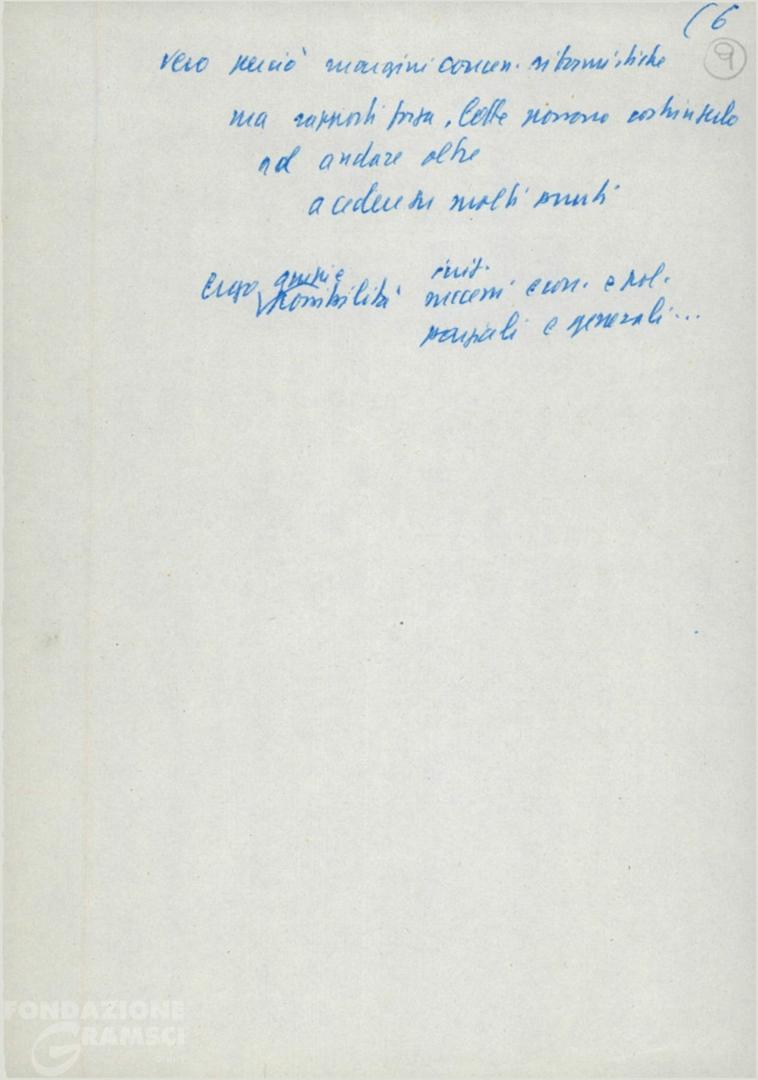 (6
9
vero perciò margini concen. riformistiche
ma rapporti forza, lotte possono costringerlo
ad andare oltre
a cedere su molti punti
ergo possibilità successi econ. e pol.
parziali e generali...
FONDAZIONE
GRAMSCI